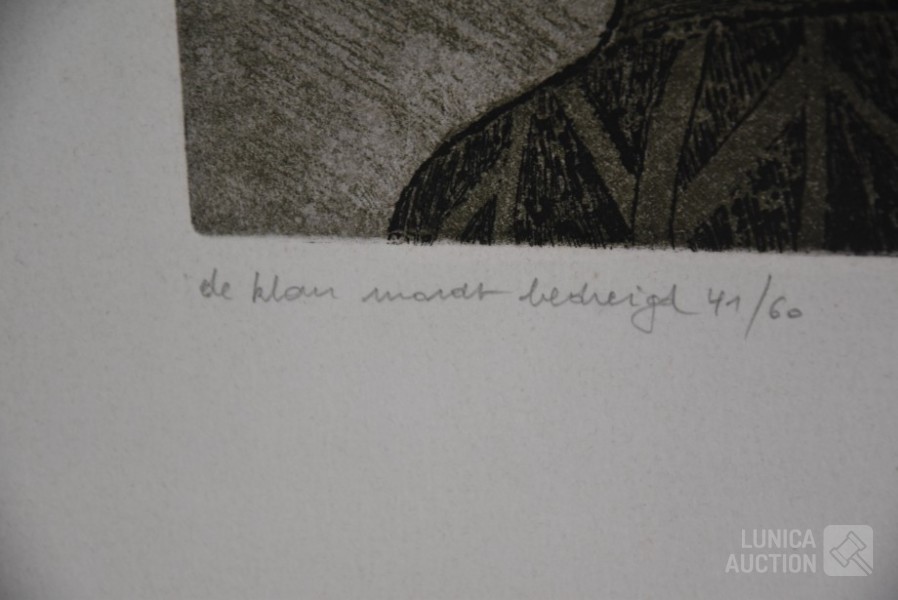 de klan wordt bedreigd 41/60
LUNICA
AUCTION